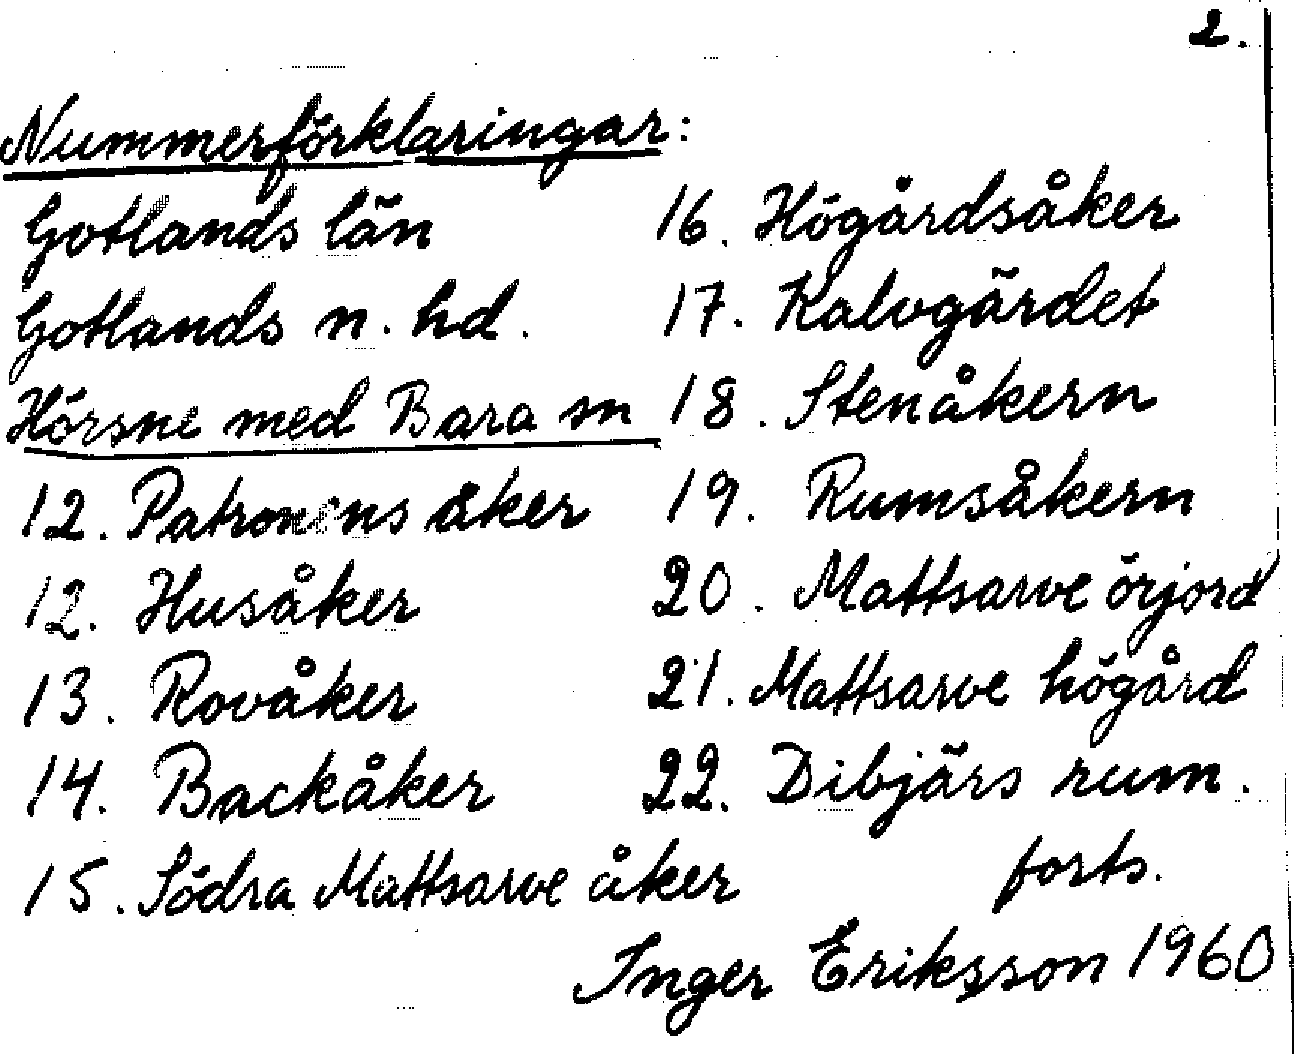 2.
Nummerförklaringar:
Gotlands län
Gotlands n. hd.
Hörsne med Bara sn
12. Patronens åker
12. Husåker
13. Rovåker
14. Backåker
15. Södra Mattsarve åker
16. Högårdsåker
17. Kalvgärdet
18. Stenåkern
19. Rumsåkern
20. Mattsarve örjord
21. Mattsarve högård
22. Dibjärs rum.
forts.
Inger Eriksson 1960